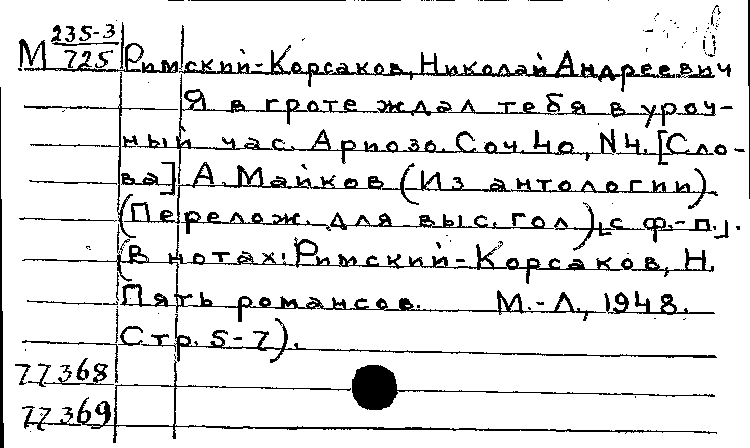 М 235-3/725 Римский-Корсаков, Николай Андреевич
Я в гроте ждал тебя в уроч-
ный час. Ариозо. Соч. 40, N4. [Сло-
ва] А. Майков (Из антологии).
(Перелож. для выс. гол.) [с ф.-п.].
(В нотах: Римский-Корсаков, Н.
Пять романсов. М.-Л., 1948.
Стр. 5-7).
77368
77369